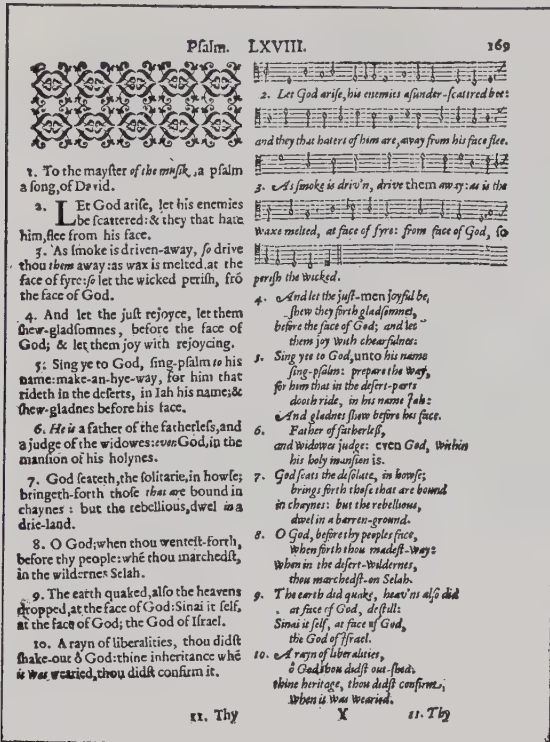 Psalm. LXVIII. 169
1. To the mayster of the musik, a psalm
a song, of David.
2. LEt God arise, let his enemies
be scattered: & they that hate
him, flee from his face.
3. As smoke is driven-away, so drive
thou them away: as wax is melted, at the
face of fyre: so let the wicked perish, frō
the face of God.
4. And let the just rejoyce, let them
shew-gladsomnes, before the face of
God; & let them joy with rejoycing.
5. Sing ye to God, sing-psalm to his
name: make-an-hye-way, for him that
rideth in the deserts, in Iah his name; &
shew-gladnes before his face.
6. He is a father of the fatherless, and
a judge of the widowes: even God, in the
mansion of his holynes.
7. God seateth, the solitarie, in howse;
bringeth-forth those that are bound in
chaynes: but the rebellious, dwel in a
drie-land.
8. O God; when thou wentest-forth,
before thy people: whē thou marchedst,
in the wildernes Selah.
9. The earth quaked, also the heavens
dropped, at the face of God: Sinai it self,
at the face of God; the God of Israel.
10. A rayn of liberalities, thou didst
shake-out ô God: thine inheritance whē
it was wearied, thou didst confirm it.
11. Thy
2. Let God arise, his enemies asunder-scattred bee:
and they that haters of him are, away from his face flee.
3. As smoke is driv'n, drive them away: as is the
waxe melted, at face of fyre: from face of God, so
perish the wicked.
4. And let the just-men joyful be,
shew they forth gladsomnes,
before the face of God; and let
them joy with chearfulnes:
5. Sing yee to God, unto his name
sing-psalm: prepare the way,
for him that in the desert-parts
dooth ride, in his name Jah:
And gladnes shew before his face.
6. Father of fatherless,
and widowes judge: even God, within
his holy mansion is.
7. God seats the desolate, in howse;
brings forth those that are bound
in chaynes: but the rebellious,
dwel in a barren-ground.
8. O God, before thy peoples face,
When forth thou madest-way:
When in the desert-Wildernes,
thou marchedst-on Selah.
9. The earth did quake, heav'ns also did
at face of God, destill:
Sinai it self, at face of God,
the God of Israel.
10. A rayn of liberalities,
ô God thou didst out-shed:
thine heritage, thou didst confirm,
When it was Wearied.
Y 11. Thy